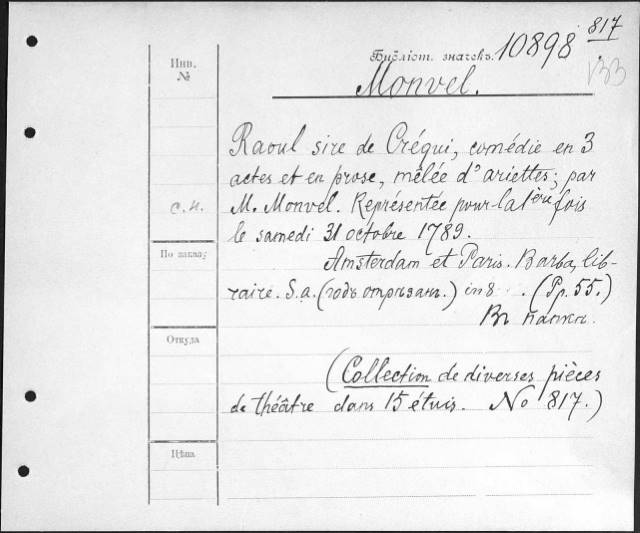 817
Библіот. значекъ. 10898
133
Инв.
№
Monvel.
Raoul sire de Créqui, comédie en 3
actes et en prose, mêlée d'ariettes; par
с. н.
M. Monvel. Représentée pour la 1ère fois
le samedi 31 octobre 1789.
По заказу
Amsterdam et Paris. Barba, lib-
raire. S. a. (годъ отрѣзанъ.) in 8. (Pp. 55.)
Въ папкѣ.
Откуда
(Collection de diverses pièces
de théâtre dans 15 étuis. No 817.)
Цѣна